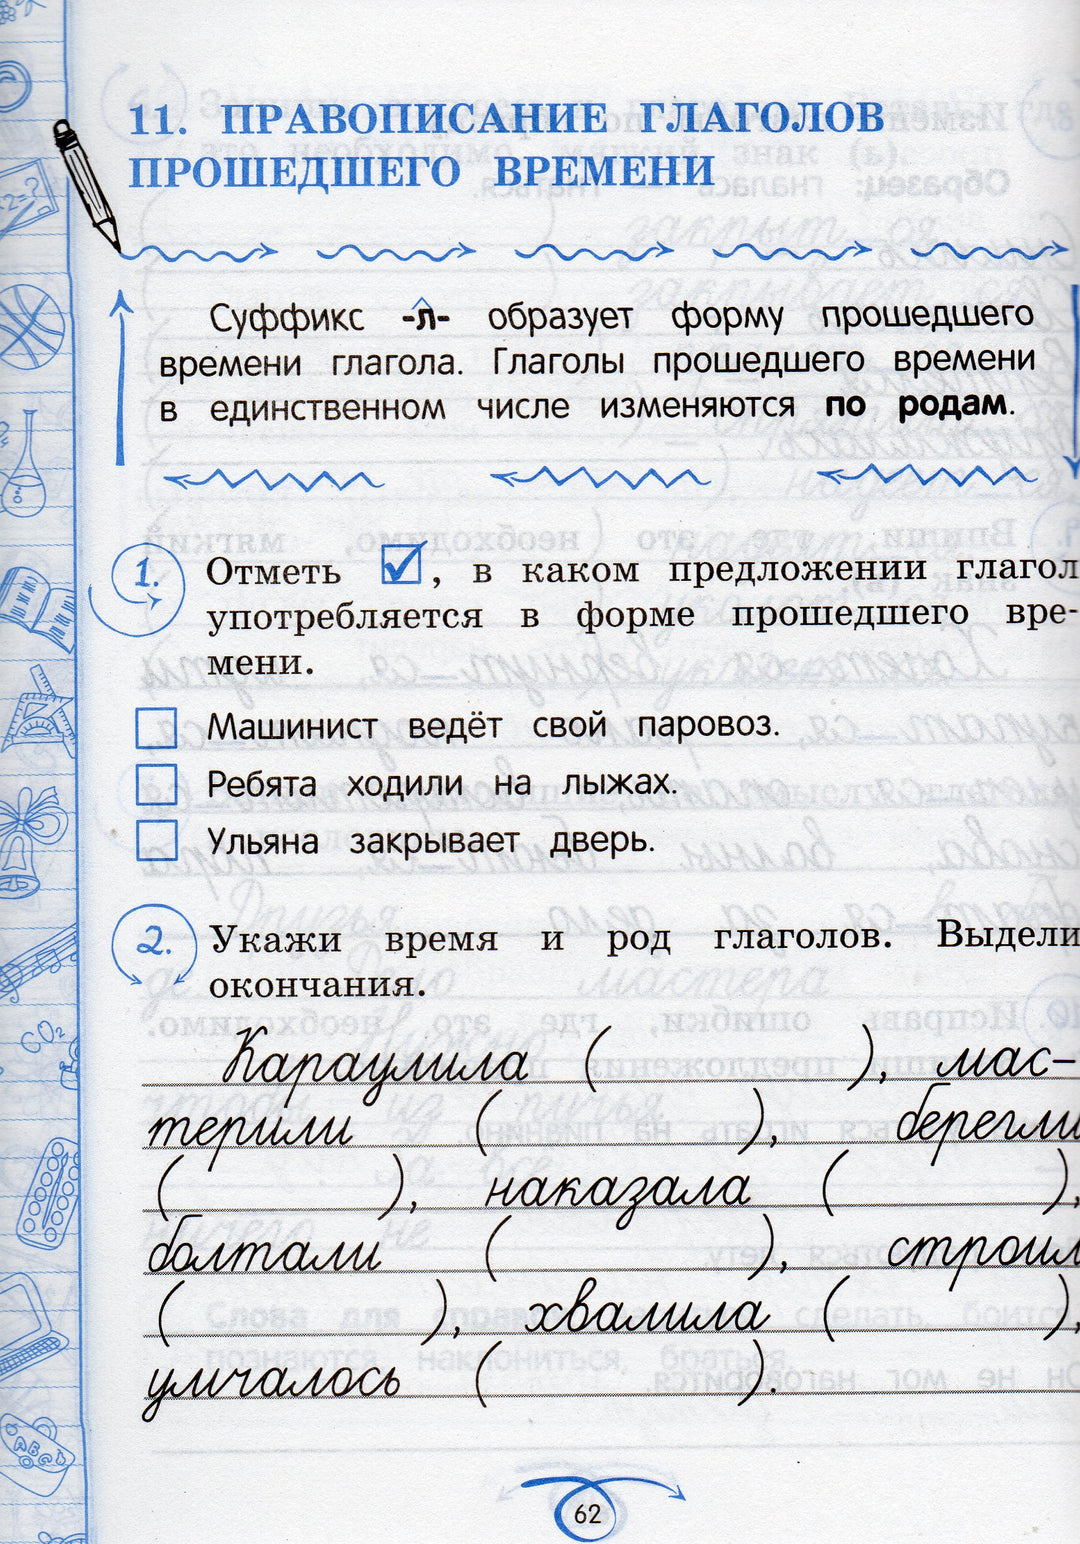 11. ПРАВОПИСАНИЕ ГЛАГОЛОВ
ПРОШЕДШЕГО ВРЕМЕНИ
Суффикс -л- образует форму прошедшего
времени глагола. Глаголы прошедшего времени
в единственном числе изменяются по родам.
1. Отметь ☑, в каком предложении глагол
употребляется в форме прошедшего вре-
мени.
Машинист ведёт свой паровоз.
Ребята ходили на лыжах.
Ульяна закрывает дверь.
2. Укажи время и род глаголов. Выдели
окончания.
Караулила ( ), мас-
терили ( ), берегли
( ), наказала ( ),
болтали ( ), строил
( ), хвалила ( ),
умчалось ( ).
62